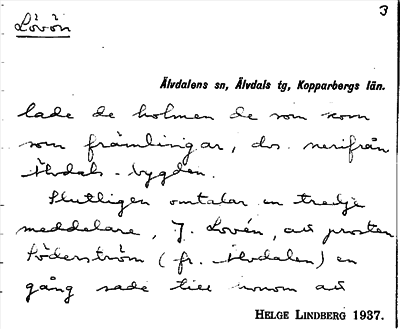 3
Lövön
Älvdalens sn, Älvdals tg, Kopparbergs län.
lade de holmen de som kom
som främlingar, dvs. nerifrån
Älvdals-bygden.
Slutligen omtalar en tredje
meddelare, J. Lovén, att prosten
Söderström (fr. Älvdalen) en
gång sade till honom att
HELGE LINDBERG 1937.